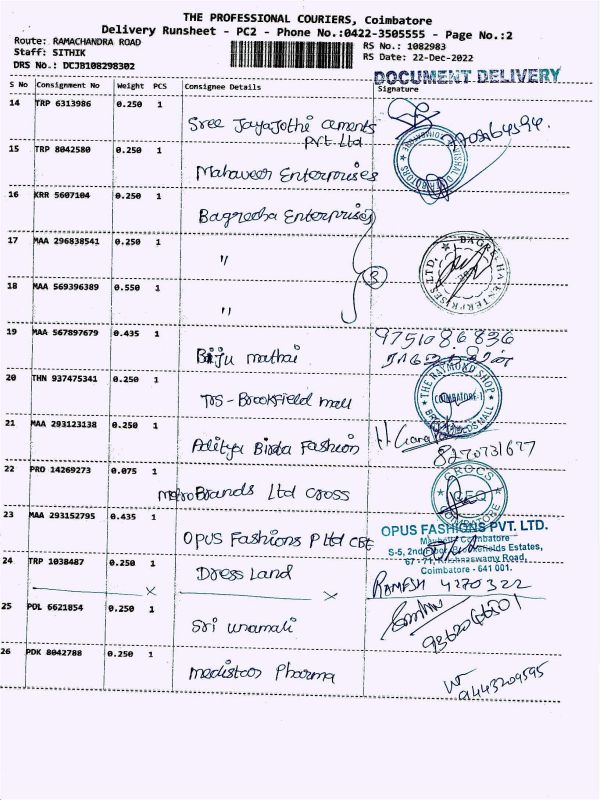 THE PROFESSIONAL COURIERS, Coimbatore
Delivery Runsheet - PC2 - Phone No.:0422-3505555 - Page No.:2
Route: RAMACHANDRA ROAD
RS No.: 1082983
Staff: SITHIK
RS Date: 22-Dec-2022
DRS No.: DCJB108298302
DOCUMENT DELIVERY
S No Consignment No Weight PCS Consignee Details Signature
14 TRP 6313986 0.250 1
Sree Jayajothi cements
Pvt. Ltd
15 TRP 8042580 0.250 1
Mahaveer Enterprises
16 KRR 5607104 0.250 1
Bagreeha Enterprises
17 MAA 296838541 0.250 1
"
BAGREEHA ENTERPRISES LTD.
3
18 MAA 569396389 0.550 1
"
19 MAA 567897679 0.435 1
Biju mathai
9751086836
20 THN 937475341 0.250 1
TBS - Brookfield mall
THE RAYMOND SHOP
COIMBATORE-1
21 MAA 293123138 0.250 1
Aditya Birla Fashion
8270731677
22 PRO 14269273 0.075 1
Metro Brands Ltd cross
CROCS
COIMBATORE
23 MAA 293152795 0.435 1
OPUS Fashions P Ltd CBE
OPUS FASHIONS PVT. LTD.
Coimbatore
S-5, 2nd Floor, Brookefields Estates,
67 - 71, Krishnaswamy Road,
Coimbatore - 641 001.
24 TRP 1038487 0.250 1
Dress Land
RAMESH 4270322
25 POL 6621854 0.250 1
Sri
26 PDK 8042788 0.250 1
Medistoos Pharma
9443209595